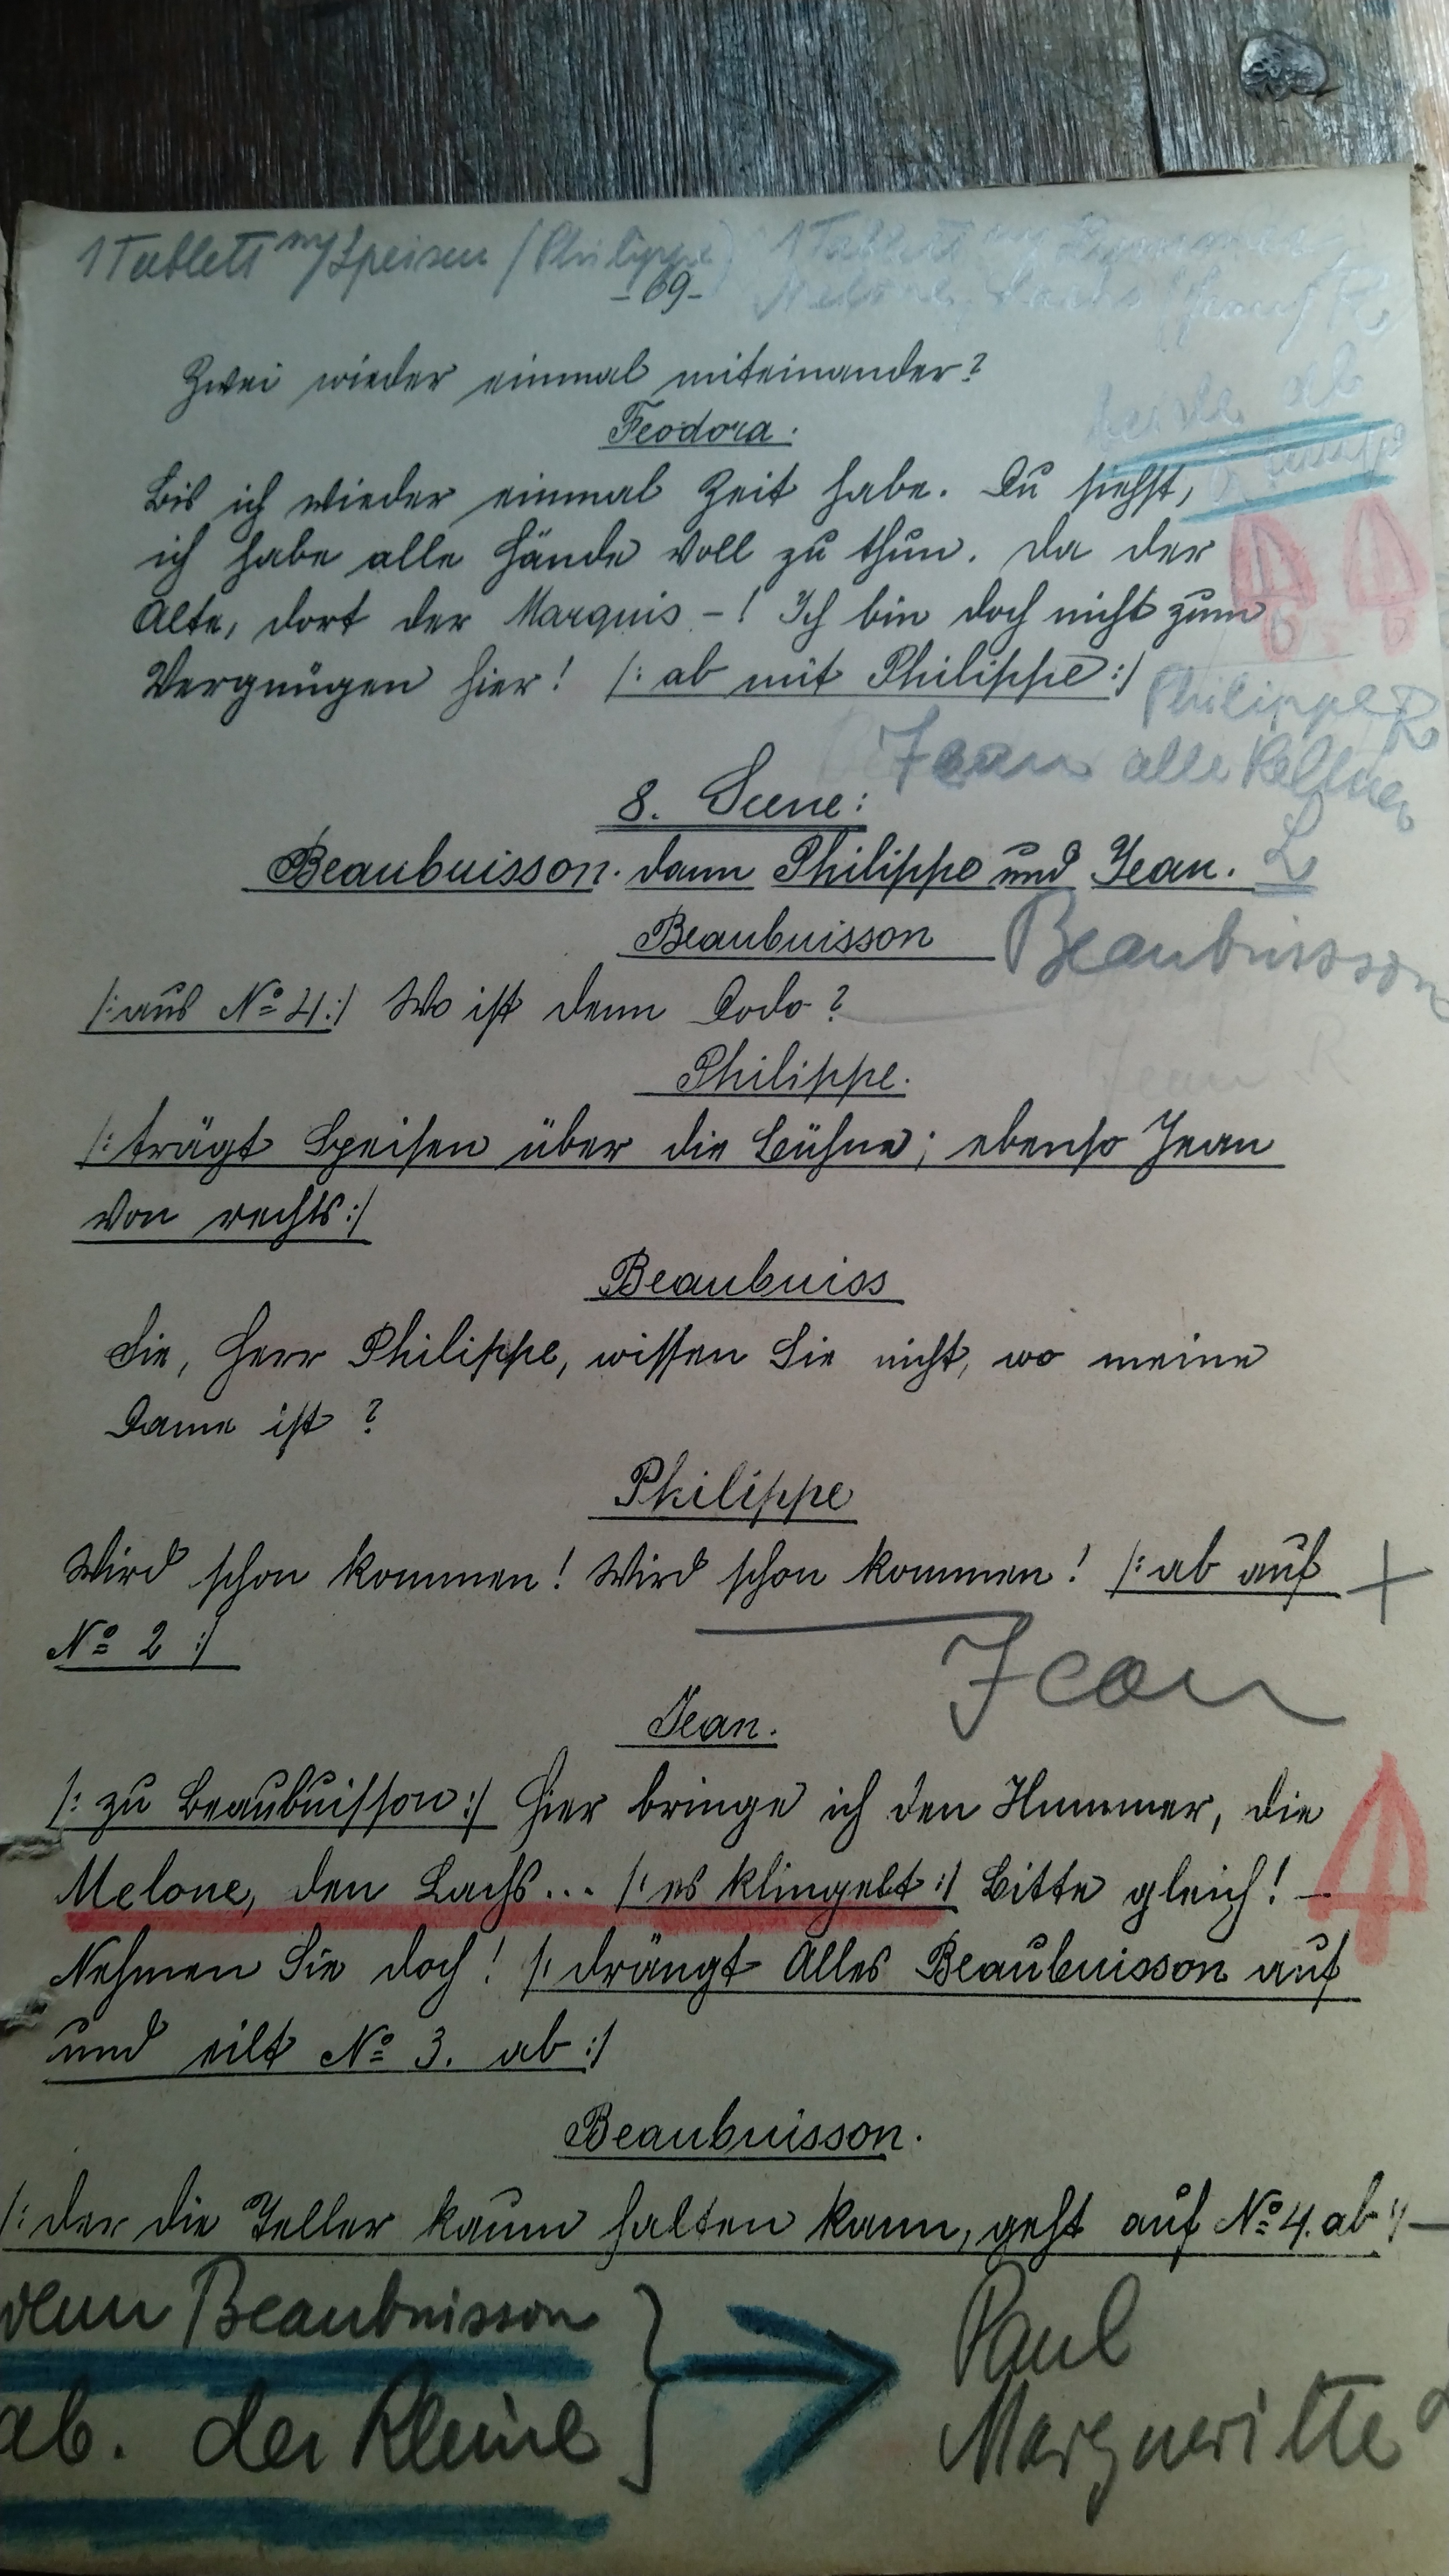 1 Tablett m/Speisen (Philippe) 1 Tablett m/ Hummer,
Melone, Lachs (Jean) R
- 69 -
Zwei wieder einmal miteinander?
beide ab
Feodora.
Bis ich wieder einmal Zeit habe. Du siehst,
ich habe alle Hände voll zu thun. Da der
Alte, dort der Marquis -! Ich bin doch nicht zum
Vergnügen hier! /: ab mit Philippe :/
Philippe R
Jean alle Kellner
L
8. Scene:
Beaubuisson. dann Philippe und Jean.
Beaubuisson
Beaubuisson
/: aus No 4 :/ Wo ist denn Dodo?
Jean R
Philippe.
/: trägt Speisen über die Bühne; ebenso Jean
von rechts :/
Beaubuiss
Sie, Herr Philippe, wissen Sie nicht, wo meine
Dame ist?
Philippe
Wird schon kommen! Wird schon kommen! /: ab auf
No 2 :/
Jean
Jean.
/: zu Beaubuisson :/ Hier bringe ich den Hummer, die
Melone, den Lachs... /: es klingelt :/ Bitte gleich! –
Nehmen Sie doch! /: drängt Alles Beaubuisson auf
und eilt No 3. ab :/
Beaubuisson.
/: der die Teller kaum halten kann, geht auf No 4. ab :/ –
wenn Beaubuisson
ab. der Kleine
Paul
Margueritte